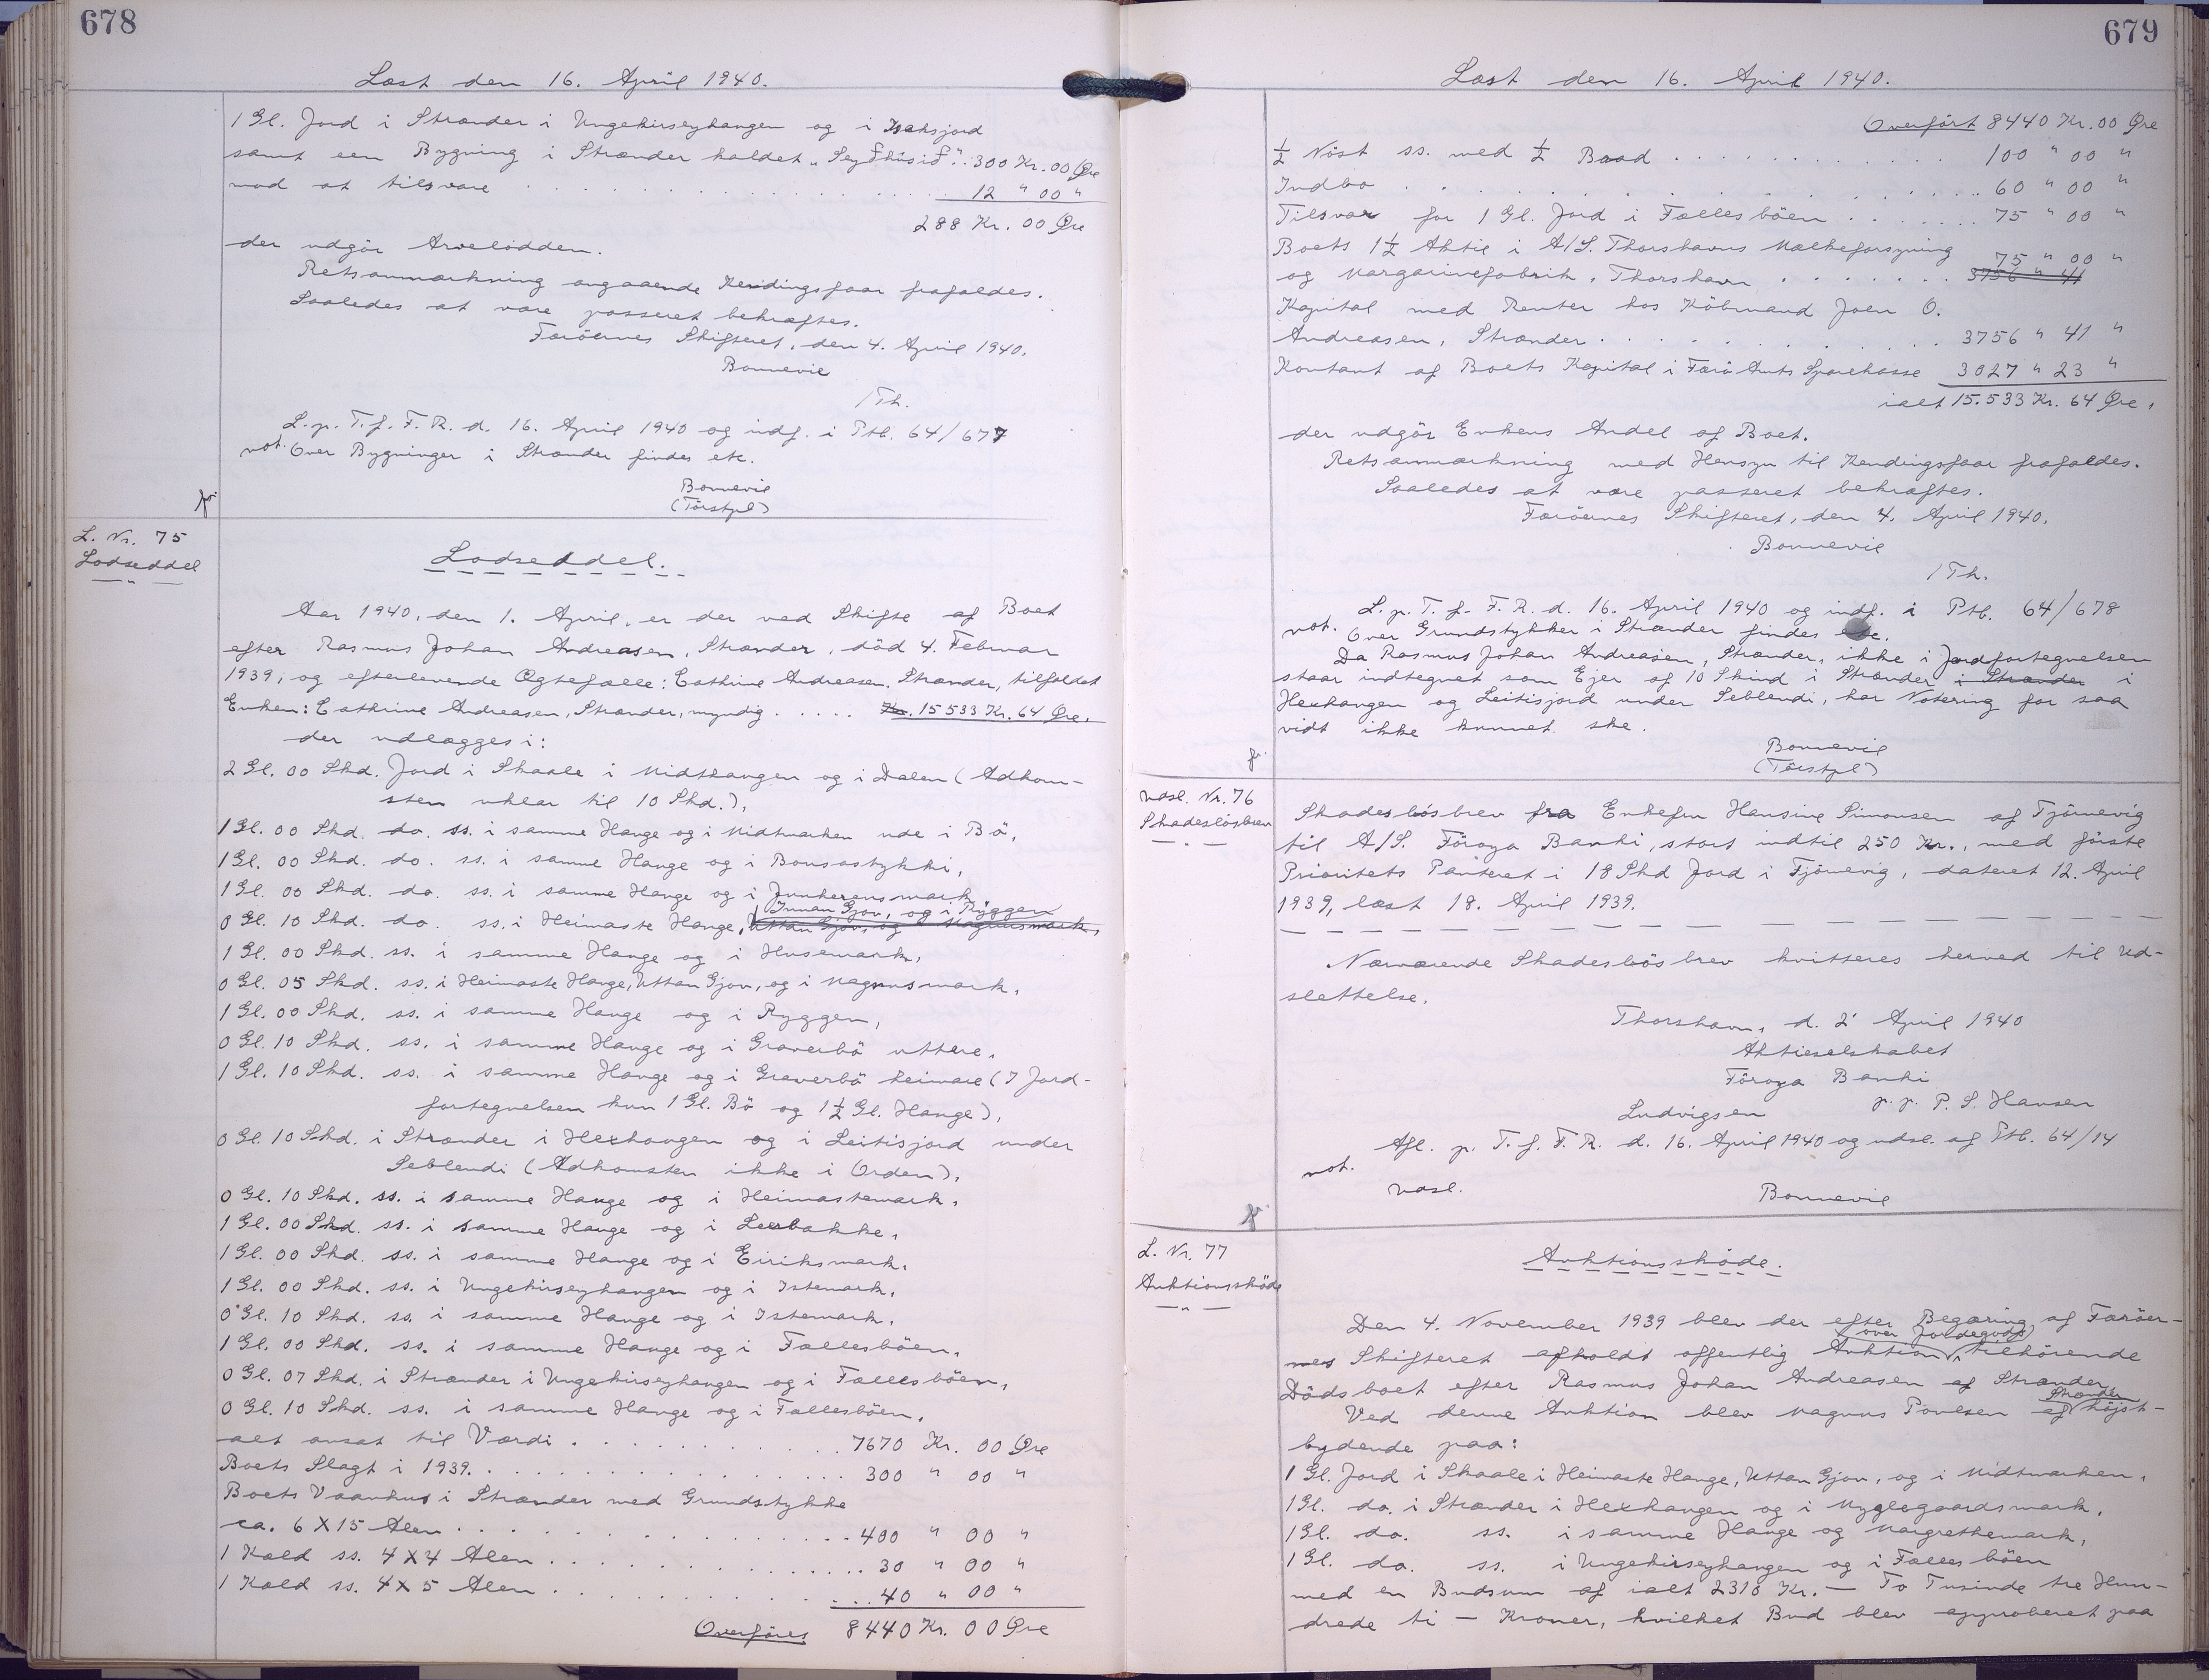 678
Læst den 16. April 1940.
1 Gl. Jord i Strænder i Ungekirseyhangen og i Isaksjord
samt een Bygning i Strænder kaldet "Seyðhúsið".. 300 Kr. 00 Øre
mod at tilsvare . . . . . 12 " 00 "
288 Kr. 00 Øre
der udgör Arvelodden.
Retsanmærkning angaaende Kendingsfaar frafaldes.
Saaledes at være passeret bekræftes.
Færöernes Skifteret, den 4. April 1940.
Bonnevie
/Th.
L. p. T. f. F. R. d. 16. April 1940 og indf. i Ptb. 64/677
not. Over Bygninger i Strænder findes etc.
Bonnevie
(Törstpl)
L. Nr. 75
Lodseddel
Lodseddel.
Aar 1940, den 1. April, er der ved Skifte af Boet
efter Rasmus Johan Andreasen, Strænder, död 4. Februar
1939, og efterlevende Ægtefælle: Cathrine Andreasen, Strænder, tilfaldet
Enken: Cathrine Andreasen, Strænder, myndig . . . . . Kr. 15533 Kr. 64 Øre.
der udlægges i:
2 Gl. 00 Skd. Jord i Skaale i Midthangen og i Dalen (Adkom-
sten uklar til 10 Skd.),
1 Gl. 00 Skd. do. ss. i samme Hauge og i Midtmarken ude i Bö,
1 Gl. 00 Skd. do. ss. i samme Hauge og i Bonsastykki,
1 Gl. 00 Skd. do. ss. i samme Hauge og i Junkerens mark,
Innan Gjov, og i Ryggen
0 Gl. 10 Skd. do. ss. i Heimaste Hauge, Uttan Gjov, og i Magnusmark,
1 Gl. 00 Skd. ss. i samme Hauge og i Husemark,
0 Gl. 05 Skd. ss. i Heimaste Hauge, Uttan Gjov, og i Magnusmark,
1 Gl. 00 Skd. ss. i samme Hauge og i Ryggen,
0 Gl. 10 Skd. ss. i samme Hauge og i Graverbö uttere,
1 Gl. 10 Skd. ss. i samme Hauge og i Graverbö heimare (I Jord-
fortegnelsen kun 1 Gl. Bö og 1½ Gl. Hauge),
0 Gl. 10 Skd. i Strænder i Hexhangen og i Leitisjord under
Seblendi (Adkomsten ikke i Orden),
0 Gl. 10 Skd. ss. i samme Hauge og i Heimastemark,
1 Gl. 00 Skd. ss. i samme Hauge og i Leerbakke,
1 Gl. 00 Skd. ss. i samme Hauge og i Eiriksmark,
1 Gl. 00 Skd. ss. i Ungekirseyhangen og i Istemark,
0 Gl. 10 Skd. ss. i samme Hauge og i Istemark,
1 Gl. 00 Skd. ss. i samme Hauge og i Fællesböen,
0 Gl. 07 Skd. i Strænder i Ungekirseyhangen og i Fællesböen,
0 Gl. 10 Skd. ss. i samme Hauge og i Fællesböen,
alt ansat til Værdi . . . . . 7670 Kr. 00 Øre
Boets Slagt i 1939. . . . . . 300 " 00 "
Boets Vaanhus i Strænder med Grundstykke
ca. 6 X 15 Alen . . . . . 400 " 00 "
1 Kæld ss. 4 X 4 Alen . . . . . 30 " 00 "
1 Kæld ss. 4 X 5 Alen . . . . . 40 " 00 "
Overföres 8440 Kr. 00 Øre
679
Læst den 16. April 1940.
Overfört 8440 Kr. 00 Øre
½ Nöst ss. med ½ Baad . . . . . 100 " 00 "
Indbo . . . . . 60 " 00 "
Tilsvar for 1 Gl. Jord i Fællesböen . . . . . 75 " 00 "
Boets 1½ Aktie i A/S. Thorshavns Mælkeforsyning
75 " 00 "
og Margarinefabrik, Thorshavn . . . . . 3756 " 41
Kapital med Renter hos Köbmand Joen O.
Andreasen, Strænder . . . . . 3756 " 41 "
Kontant af Boets Kapital i Færö Amts Sparekasse 3027 " 23 "
ialt 15.533 Kr. 64 Øre,
der udgör Enkens Andel af Boet.
Retsanmærkning med Hensyn til Kendingsfaar frafaldes.
Saaledes at være passeret bekræftes.
Færöernes Skifteret, den 4. April 1940.
Bonnevie
/Th.
L. p. T. f. F. R. d. 16. April 1940 og indf. i Ptb. 64/678
not. Over Grundstykker i Strænder findes etc.
Da Rasmus Johan Andreasen, Strænder, ikke i Jordfortegnelsen
staar indtegnet som Ejer af 10 Skind i Strænder i Strænder i
Hexhangen og Leitisjord under Seblendi, har Notering for saa
vidt ikke kunnet ske.
Bonnevie
(Törstpl)
Udsl. Nr. 76
Skadeslösbrev
Skadeslösbrev fra Enkefru Hansine Simonsen af Tjörnevig
til A/S. Föroya Banki, stort indtil 250 Kr., med förste
Prioritets Panteret i 18 Skd Jord i Tjörnevig, dateret 12. April
1939, læst 18. April 1939.
Nærværende Skadeslösbrev kvitteres herved til Ud-
slettelse.
Thorshavn, d. 2' April 1940
Aktieselskabet
Föroya Banki
Ludvigsen p. p. P. S. Hansen
Afl. p. T. f. F. R. d. 16. April 1940 og udsl. af Ptb. 64/14
not.
Udsl.
Bonnevie
L. Nr. 77
Auktionsskøde
Auktionsskøde.
Den 4. November 1939 blev der efter Begæring af Færöer-
over Jordegods
nes Skifteret afholdt offentlig Auktion tilhörende
Dödsboet efter Rasmus Johan Andreasen af Strænder.
Strænder
Ved denne Auktion blev Magnus Poulsen af höjst-
bydende paa:
1 Gl. Jord i Skaale i Heimaste Hauge, Uttan Gjov, og i Midtmarken,
1 Gl. do. i Strænder i Hexhangen og i Myglegaardsmark,
1 Gl. do. ss. i samme Hauge og Margrethemark,
1 Gl. do. ss. i Ungekirseyhangen og i Fællesböen
med en Budsum af ialt 2310 Kr. — To Tusinde tre Hun-
drede ti — Kroner, hvilket Bud blev approberet paa